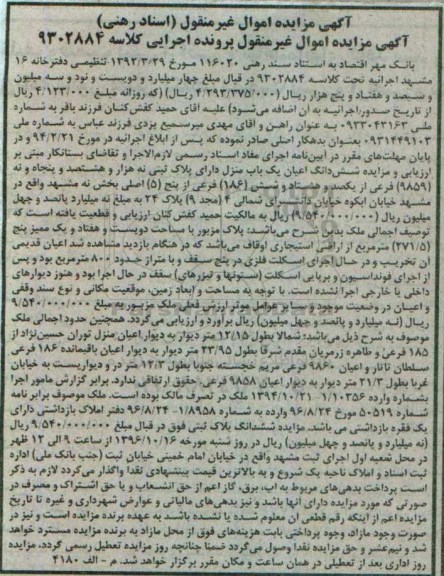 آگهی مزایده اموال غیرمنقول (اسناد رهنی)
آگهی مزایده اموال غیرمنقول پرونده اجرایی کلاسه ۹۳۰۲۸۸۴
بانک مهر اقتصاد به استناد سند رهنی ۱۱۶۰۲۰ مورخ ۱۳۹۲/۳/۲۹ تنظیمی دفترخانه ۱۶
مشهد اجرائیه تحت کلاسه ۹۳۰۲۸۸۴ در قبال مبلغ چهار میلیارد و دویست و نود و سه میلیون
و سیصد و هفتاد و پنج هزار ریال (۴/۲۹۳/۳۷۵/۰۰۰ ریال) (که روزانه مبلغ ۴/۱۲۳/۰۰۰ ریال
از تاریخ صدور اجرائیه به ان اضافه می‌شود) علیه آقای حمید کفش‌کنان فرزند باقر به شماره
ملی ۰۹۳۳۰۴۳۱۶۳ به عنوان راهن و آقای مهدی میرسمیع یزدی فرزند عباس به شماره ملی
۰۹۳۱۴۴۹۱۰۳ بعنوان بدهکار اصلی صادر نموده که پس از ابلاغ اجرائیه در مورخ ۹۴/۲/۲۱ و در
پایان مهلت‌های مقرر در آیین‌نامه اجرای مفاد اسناد رسمی لازم‌الاجرا و تقاضای بستانکار مبنی بر
ارزیابی و مزایده شش‌دانگ اعیان یک باب منزل دارای پلاک ثبتی نه هزار و هشتصد و پنجاه و نه
(۹۸۵۹) فرعی از یکصد و هشتاد و شش (۱۸۶) فرعی از پنج (۵) اصلی بخش نه مشهد واقع در
مشهد خیابان آبکوه خیابان دانشسرای شمالی ۴ (مجد ۹) پلاک ۲۴ به مبلغ نه میلیارد پانصد و چهل
میلیون ریال (۹/۵۴۰/۰۰۰/۰۰۰) ریال به مالکیت حمید کفش کنان ارزیابی و قطعیت یافته است که
توصیف اجمالی ملک بدین شرح می‌باشد: پلاک مزبور با مساحت دویست و هفتاد و یک ممیز پنج
(۲۷۱/۵) مترمربع از اراضی استیجاری اوقاف می‌باشد که در هنگام بازدید مشاهده شد اعیان قدیمی
آن تخریب و در حال اجرای اسکلت فلزی در پنج سقف و با متراژ حدود ۸۰۰ مترمربع بود و پس
از اجرای فونداسیون و برپایی اسکلت (ستونها و تیرزهای) سقف در حال اجرا بود و هنوز دیوارهای
داخلی یا خارجی اجرا نشده است. با توجه به مساحت و ابعاد زمین، موقعیت مکانی و نوع سند وقفی
و اعیان در وضعیت موجود و سایر عوامل موثر ارزش فعلی ملک مزبور به مبلغ ۹/۵۴۰/۰۰۰/۰۰۰
ریال (نه میلیارد و پانصد و چهل میلیون) ریال برآورد و ارزیابی می‌گردد. همچنین حدود اجمالی ملک
موصوف به شرح ذیل می‌باشد: شمالا بطول ۱۲/۱۵ متر دیوار به دیوار اعیان منزل توران حسین‌نژاد از
۱۸۵ فرعی و طاهره زرمریان مقدم شرقا بطول ۲۲/۹۵ متر دیوار به دیوار اعیان باقیمانده ۱۸۶ فرعی
سلطان تاتار و اعیان ۹۸۶۰ فرعی مریم خجسته جنوبا بطول ۱۲/۳ متر در و دیواریست به خیابان
غربا بطول ۲۱/۳ متر دیوار به دیوار اعیان ۹۸۵۸ فرعی حقوق ارتفاقی ندارد. برابر گزارش مامور اجرا
بشماره وارده ۱/۱۰۳۵۶ - ۱۳۹۴/۱۰/۲۱ ملک در تصرف مالک بوده است. ملک موصوف برابر نامه
شماره ۵۰۵۱۹ مورخ ۹۶/۸/۲۴ وارده به شماره ۱/۸۹۵۸ - ۹۶/۸/۲۴ دفتر املاک بازداشتی دارای
یک فقره بازداشتی می باشد. مزایده ششدانگ پلاک ثبتی فوق در قبال مبلغ ۹/۵۴۰/۰۰۰/۰۰۰ ریال
(نه میلیارد و پانصد و چهل میلیون) ریال در روز شنبه مورخه ۱۳۹۶/۱۰/۱۶ از ساعت ۹ الی ۱۲ ظهر
در محل شعبه اول اجرای ثبت مشهد واقع در خیابان امام خمینی خیابان ثبت (جنب بانک ملی) اداره
ثبت اسناد و املاک ناحیه یک شروع و به بالاترین قیمت پیشنهادی نقدا واگذار می‌گردد لازم به ذکر
است پرداخت بدهی‌های مربوط به آب، برق، گاز اعم از حق انشعاب و یا حق اشتراک و مصرف در
صورتی که مورد مزایده دارای آنها باشد و نیز بدهی‌های مالیاتی و عوارض شهرداری و غیره تا تاریخ
مزایده اعم از اینکه رقم قطعی آن معلوم شده یا نشده باشد به عهده برنده مزایده است و نیز در
صورت وجود مازاد، وجوه پرداختی بابت هزینه‌های فوق از محل مازاد به برنده مزایده مسترد خواهد
شد و نیم‌عشر و حق مزایده نقدا وصول می‌گردد ضمنا چنانچه روز مزایده تعطیل رسمی گردد، مزایده
روز اداری بعد از تعطیلی در همان ساعت و مکان مقرر برگزار خواهد شد. م - الف ۴۱۸۰